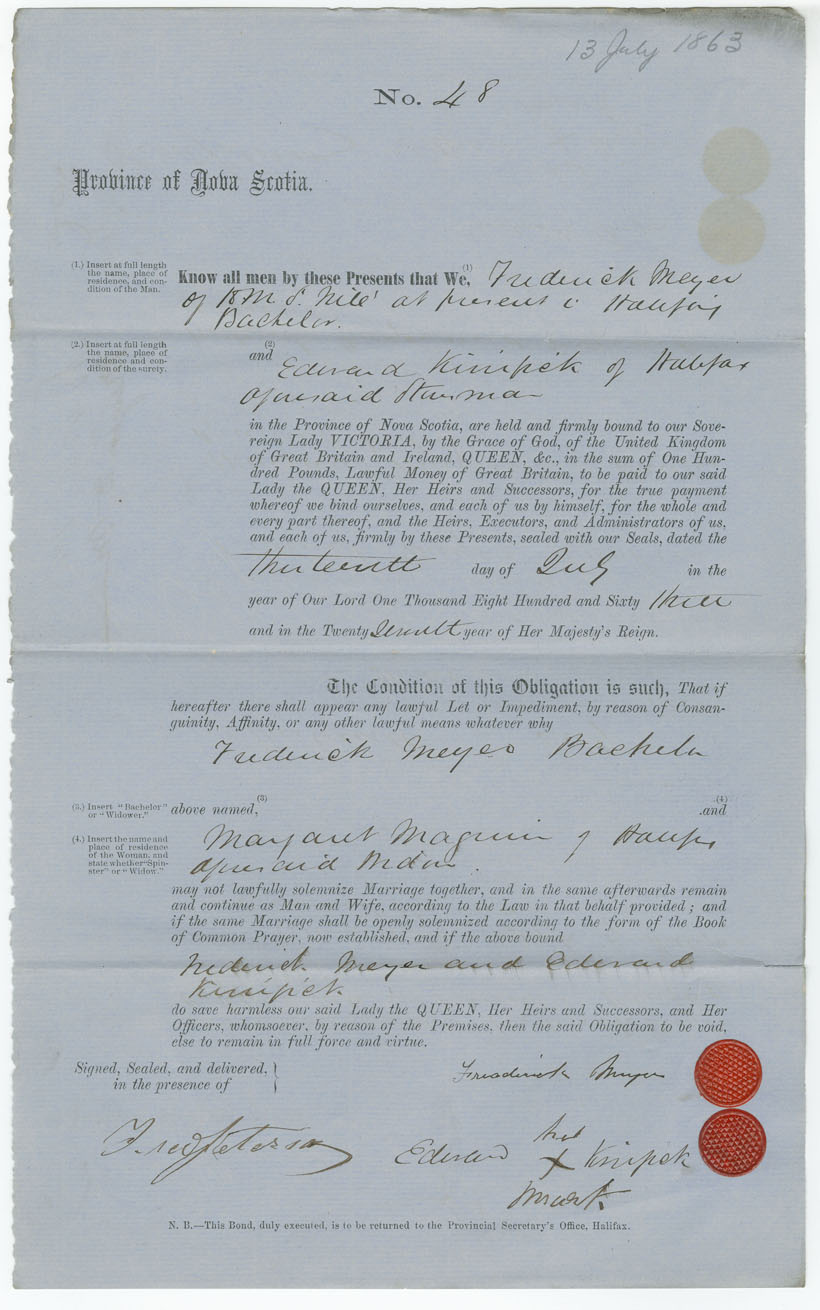 13 July 1863
No. 48
Province of Nova Scotia.
(1.) Insert at full length
the name, place of
residence, and con-
dition of the Man.
Know all men by these Presents that We, (1) Frederick Meyer
of HM S. Nile at present in Halifax
Bachelor.
(2.) Insert at full length
the name, place of
residence and con-
dition of the surety.
(2)
and Edward of Halifax
aforesaid
in the Province of Nova Scotia, are held and firmly bound to our Sove-
reign Lady VICTORIA, by the Grace of God, of the United Kingdom
of Great Britain and Ireland, QUEEN, &c., in the sum of One Hun-
dred Pounds, Lawful Money of Great Britain, to be paid to our said
Lady the QUEEN, Her Heirs and Successors, for the true payment
whereof we bind ourselves, and each of us by himself, for the whole and
every part thereof, and the Heirs, Executors, and Administrators of us,
and each of us, firmly by these Presents, sealed with our Seals, dated the
thirteenth day of July in the
year of Our Lord One Thousand Eight Hundred and Sixty three
and in the Twenty Seventh year of Her Majesty's Reign.
The Condition of this Obligation is such, That if
hereafter there shall appear any lawful Let or Impediment, by reason of Consan-
guinity, Affinity, or any other lawful means whatever why
Frederick Meyer Bachelor
(3.) Insert "Bachelor"
or "Widower."
above named, (3) .and (4)
(4.) Insert the name and
place of residence
of the Woman, and
state whether "Spin-
ster" or "Widow."
Margaret of Halifax
aforesaid Widow.
may not lawfully solemnize Marriage together, and in the same afterwards remain
and continue as Man and Wife, according to the Law in that behalf provided; and
if the same Marriage shall be openly solemnized according to the form of the Book
of Common Prayer, now established, and if the above bound
Frederick Meyer and Edward
do save harmless our said Lady the QUEEN, Her Heirs and Successors, and Her
Officers, whomsoever, by reason of the Premises, then the said Obligation to be void,
else to remain in full force and virtue.
Signed, Sealed, and delivered,
in the presence of
Friederick Meyer
Edward his X
mark
N. B.—This Bond, duly executed, is to be returned to the Provincial Secretary's Office, Halifax.